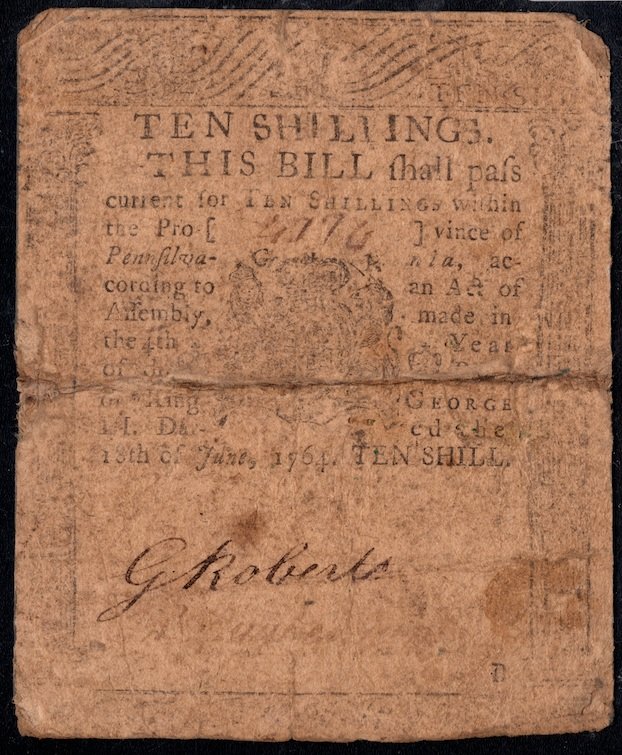 TEN S
TEN SHILLINGS.
THIS BILL ſhall paſs
current for TEN SHILLINGS within
the Pro-[ ] vince of
Pennſilva- nia, ac-
cording to an Act of
Aſſembly, made in
the 4th Year
of
King GEORGE
III. Da- ed the
18th of June, 1764. TEN SHILL.
G Roberts
D